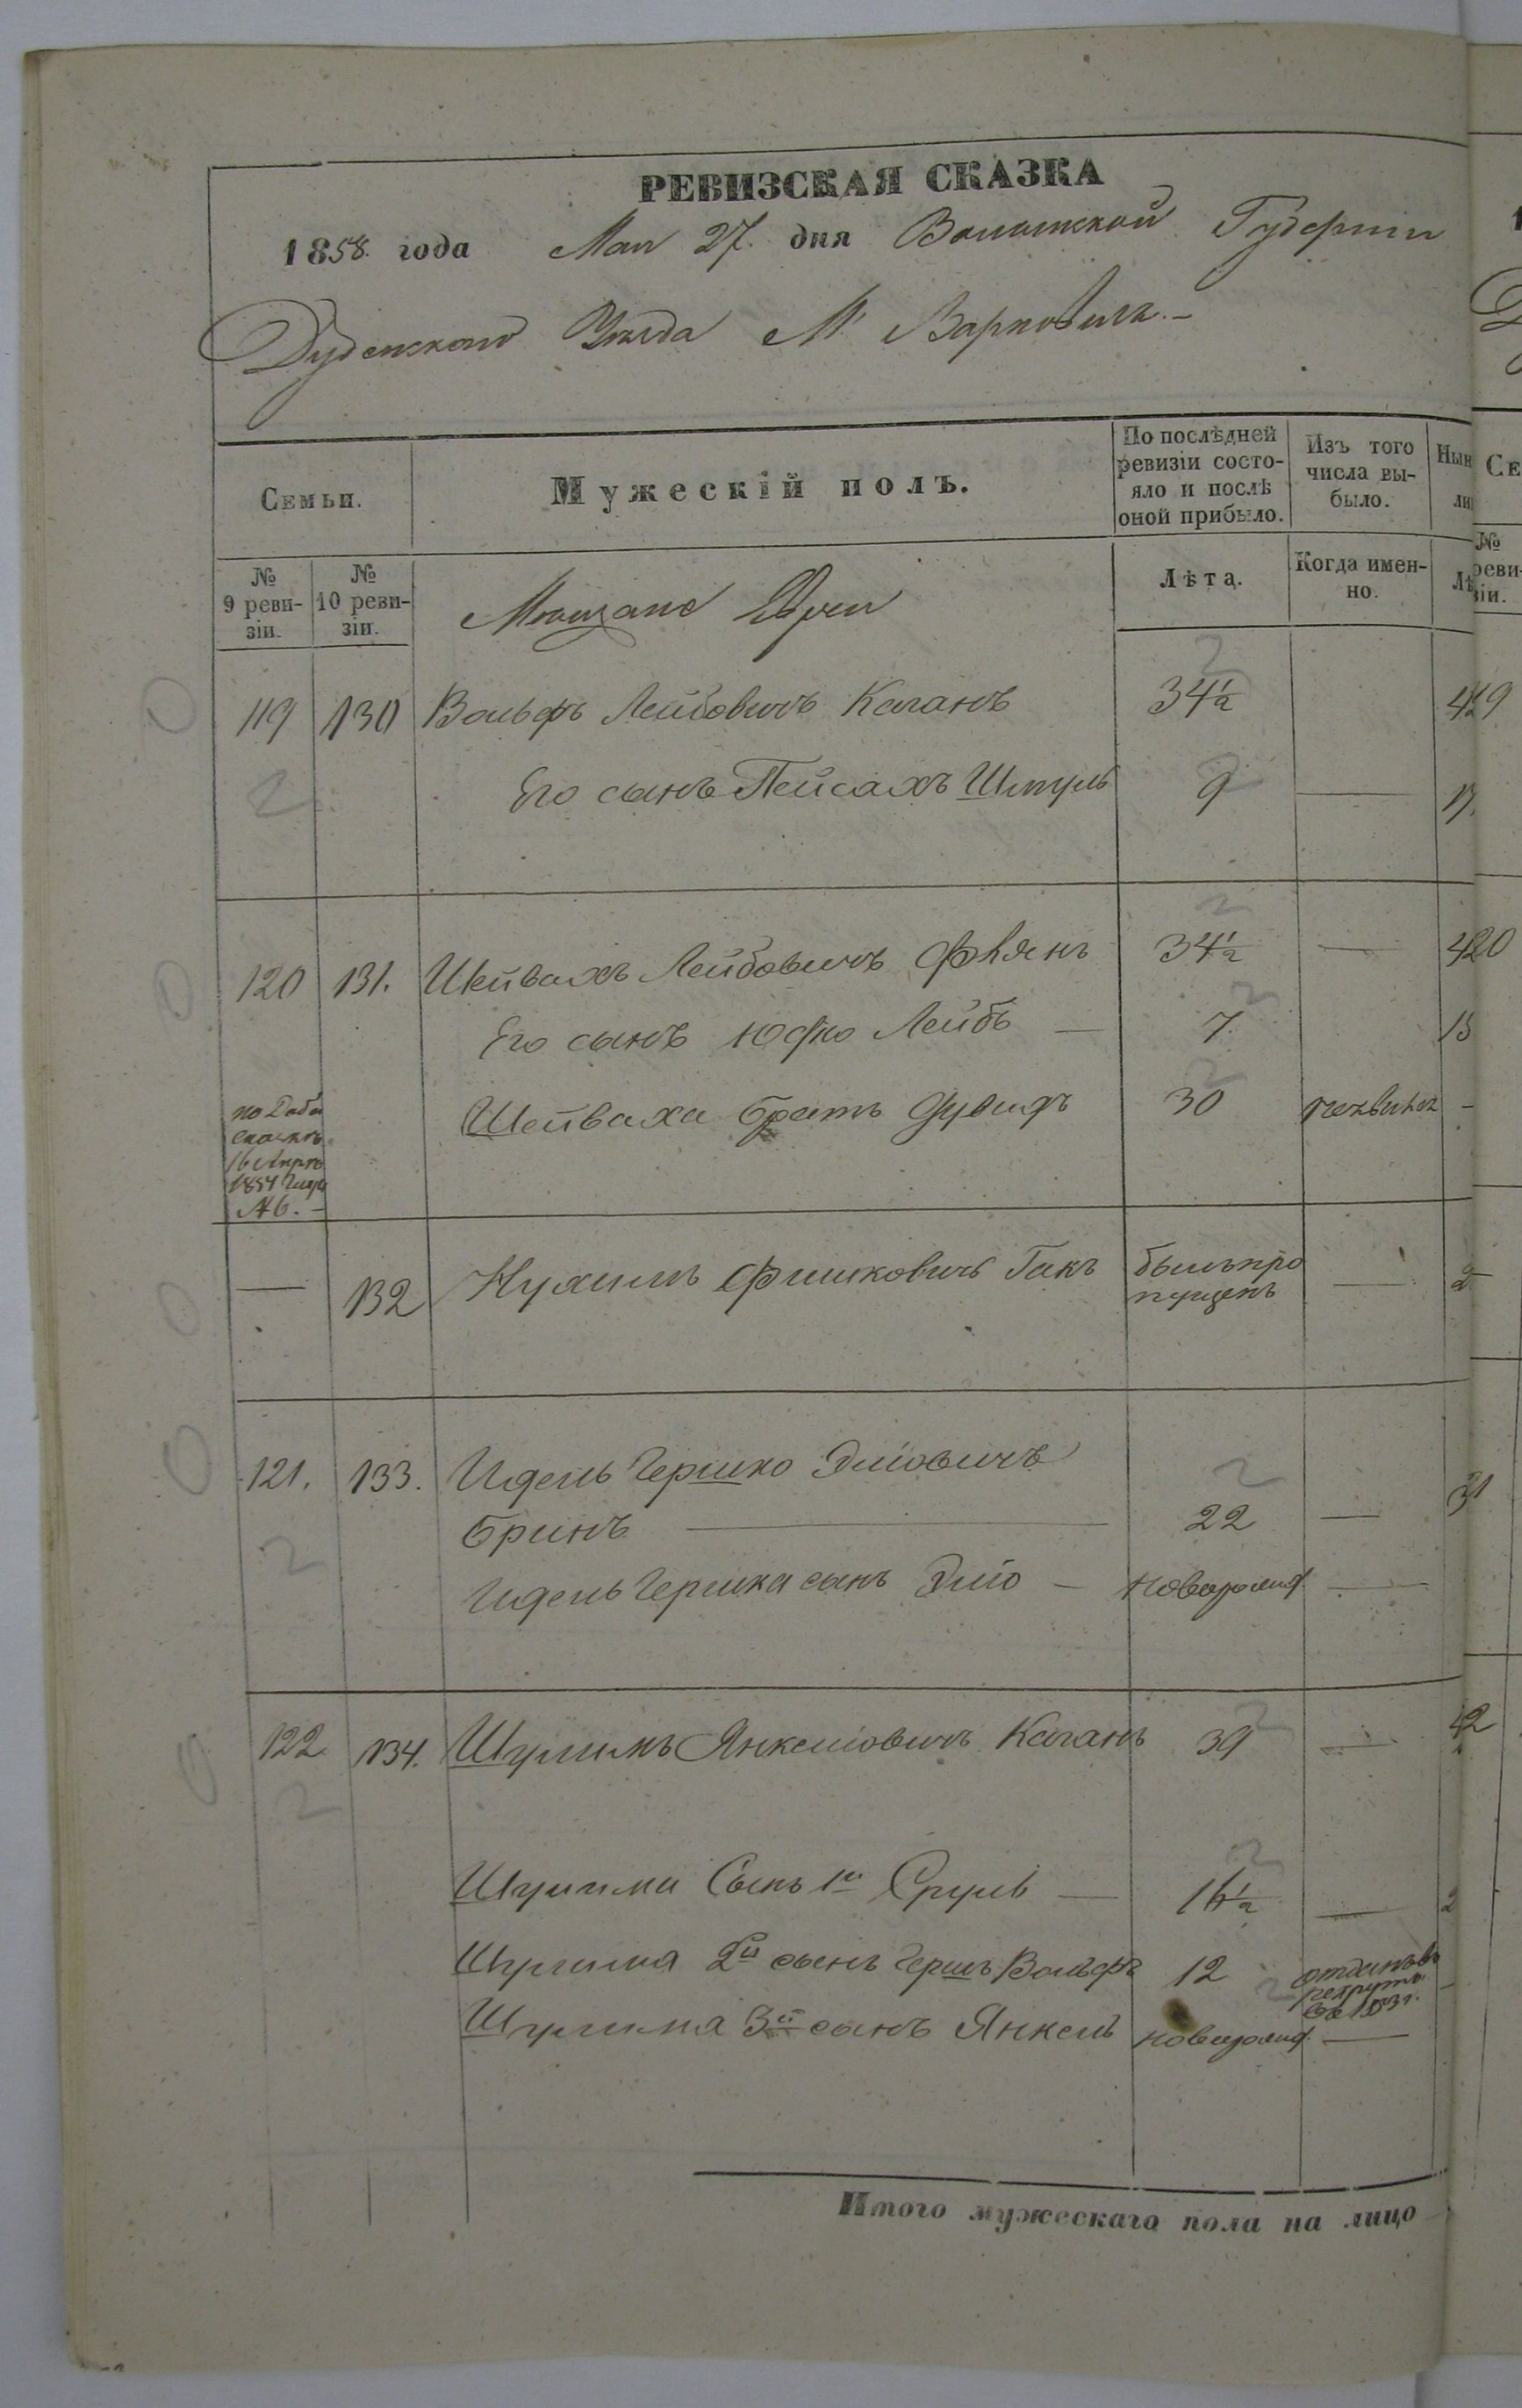 РЕВИЗСКАЯ СКАЗКА
1858. года Мая 27. дня Волынской Губернии
Дубенскаго Уѣзда М. Варковичъ.-
Семьи.
Мужескій полъ.
По послѣдней ревизіи состояло и послѣ оной прибыло.
Изъ того числа выбыло.
Нын
ли
№ 9 ревизіи.
№ 10 ревизіи.
Мѣщане Евреи
Лѣта.
Когда именно.
Лѣ
119 130 Вольфъ Лейбовичъ Каганъ 34½
Его сынъ Пейсахъ Шмуль 9 — 17.
120 131. Шейвахъ Лейбовичъ 34½ —
Его сынъ Юфко Лейбъ — 7. 15
Шейваха братъ Дувидъ 30 -
16 Апрѣ
1854 года
№ 6. -
— 132 Нухимъ Фишковичъ Гакъ былъ про
пущенъ —
121. 133. Идель Гершко Элiовичъ
Бринъ — 22 — 31
Идель Гершка сынъ Элiо — новорожд. —
122 134. Шулимъ Янкелiовичъ Каганъ 39 —
Шулима Сынъ 1й Сруль — 16½ —
Шулима 2й сынъ Гершъ Вольфъ 12 отданъ въ
рекруты
въ 1853 г.
Шулима 3й сынъ Янкель новорожд. —
Итого мужескаго пола на лицо